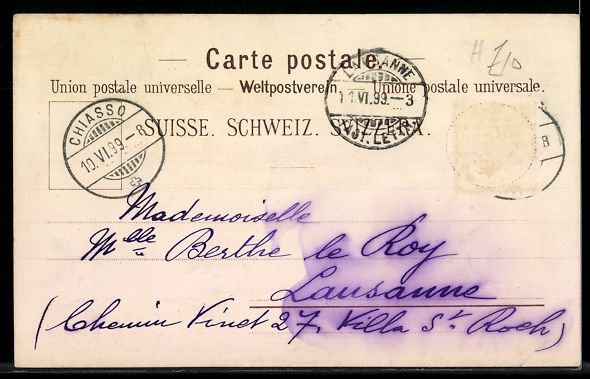 Carte postale.
Union postale universelle – Weltpostverein. – Unione postale universale.
SUISSE. SCHWEIZ. SVIZZERA.
CHIASSO
10.VI.99.–8
LAUSANNE
11.VI.99.–3
8
Mademoiselle
Mlle Berthe le Roy
Lausanne
(Chemin Vinet 27, Villa St Roch)